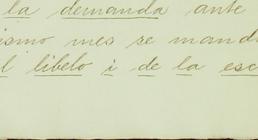 la demanda ante
ismo mes se mand
l libelo i de la esc